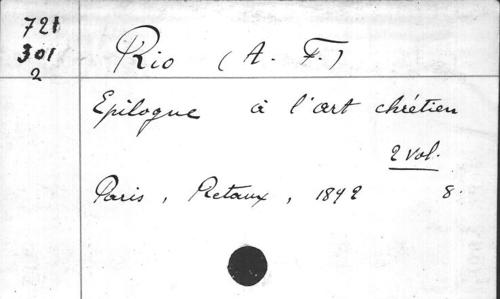 721
301
2
Rio (A. F.)
Epilogue à l'art chrétien
2 vol.
Paris, Retaux, 1892 8.